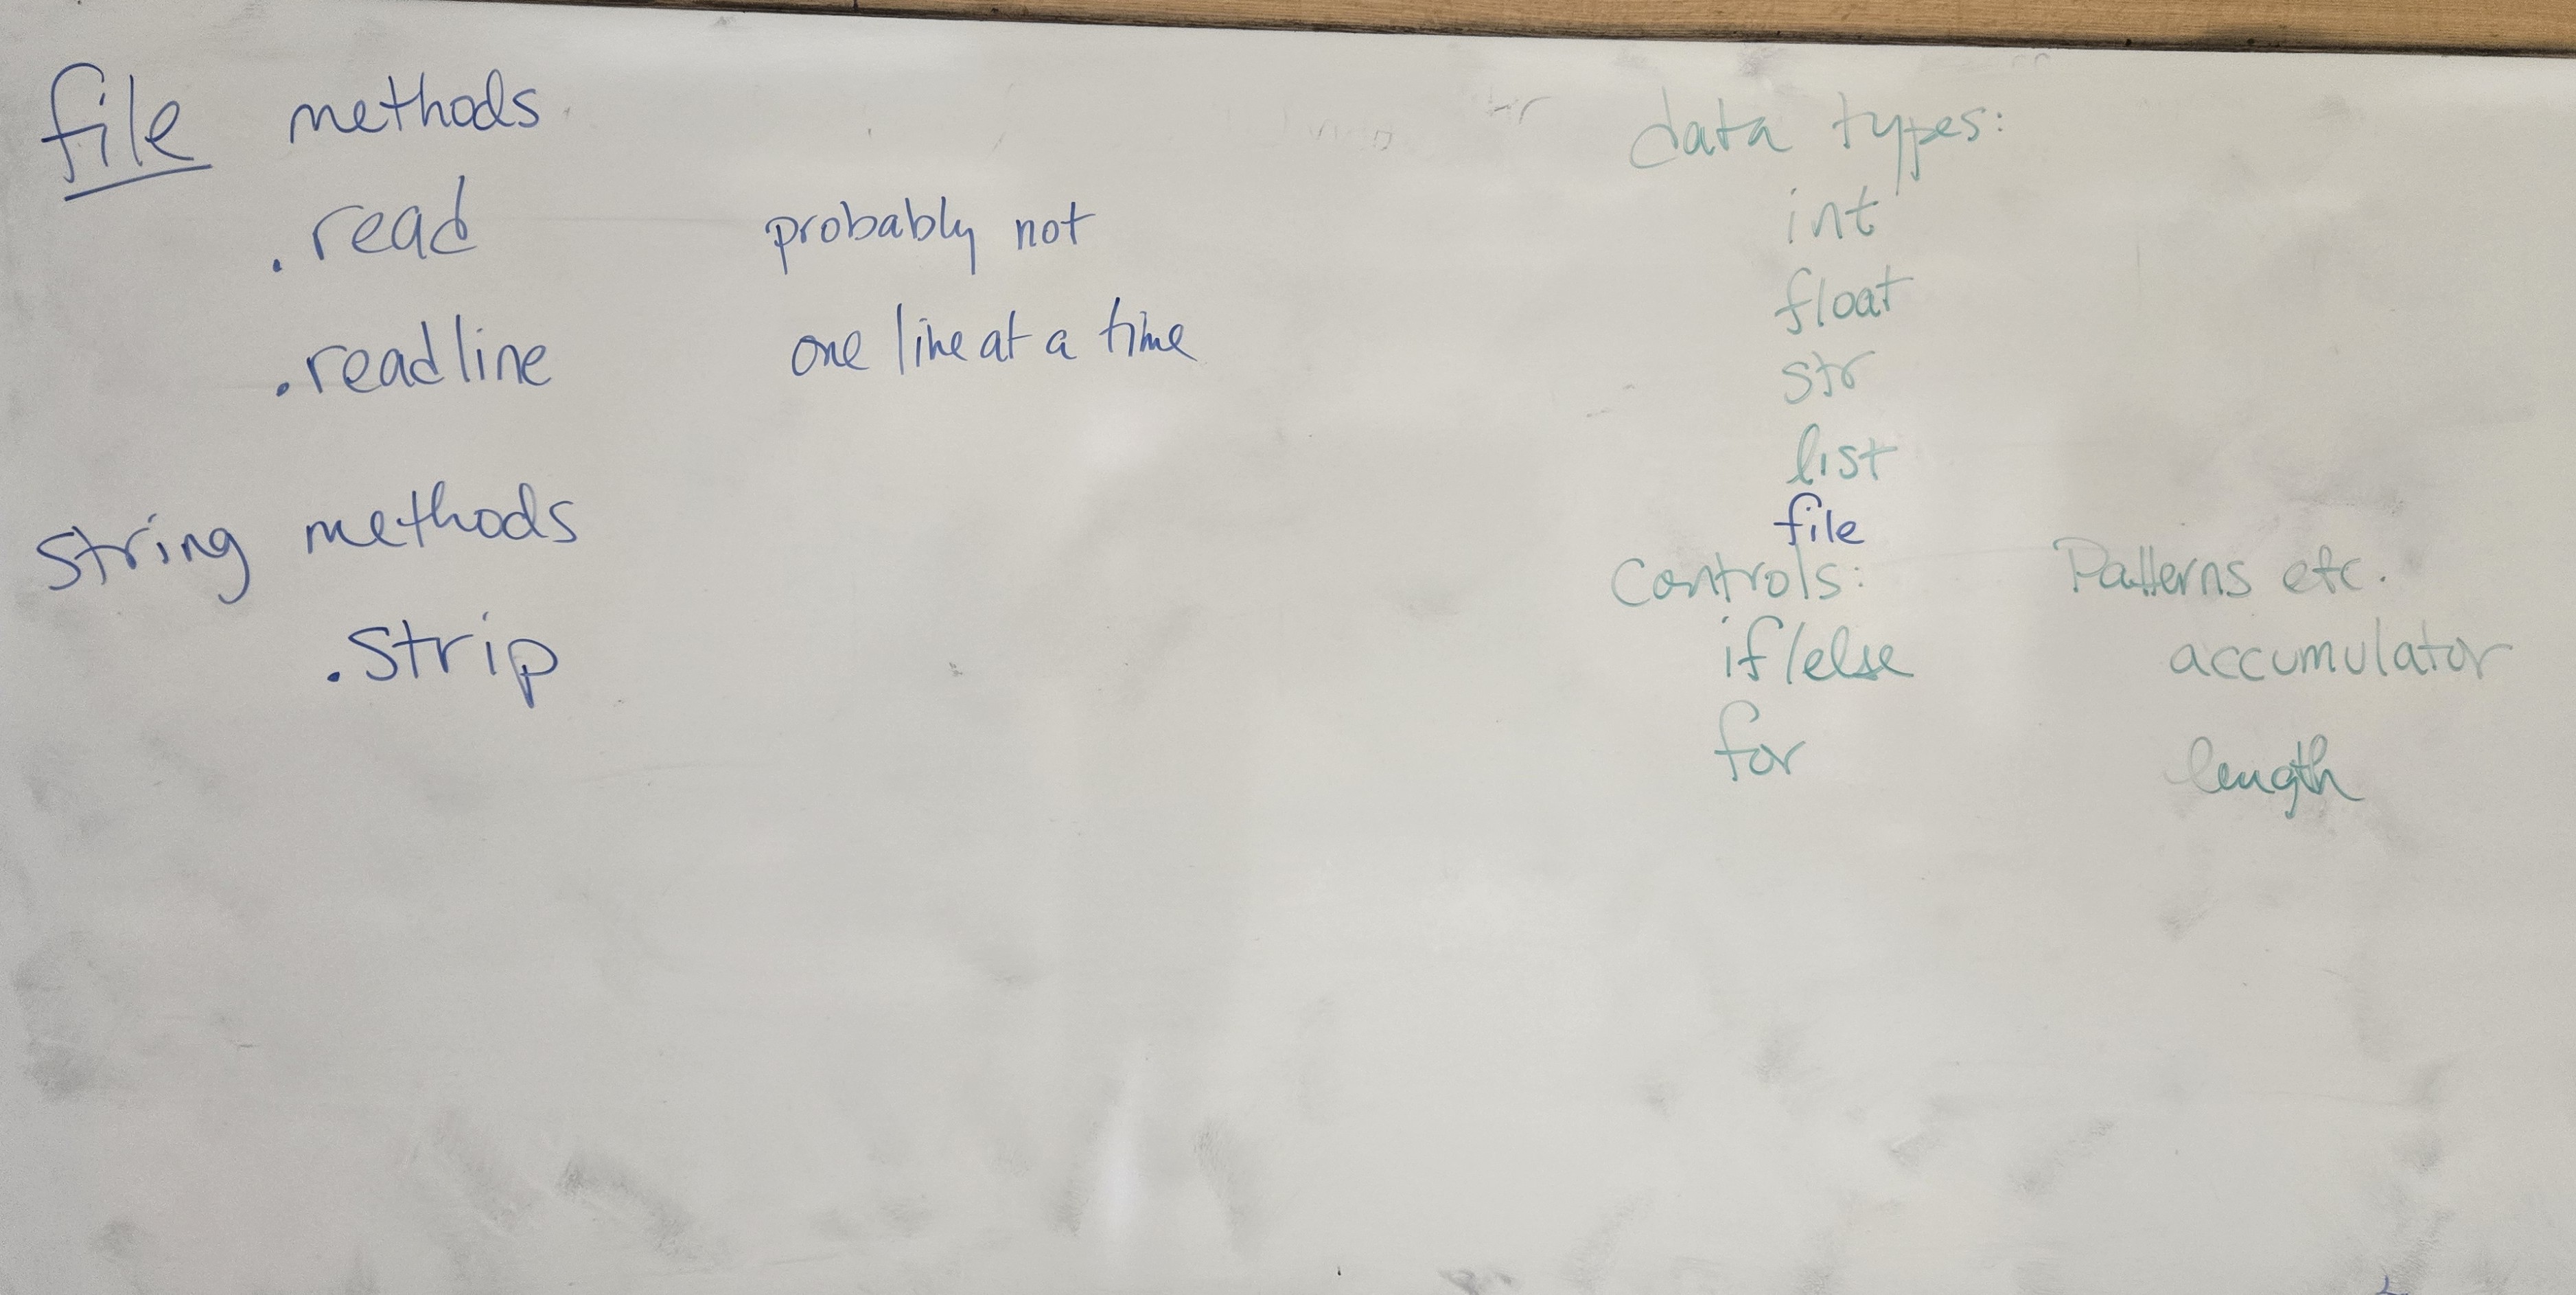 file methods
.read probably not
.readline one line at a time
string methods
.strip
data types:
int
float
str
list
file
Controls:
if/else
for
Patterns etc.
accumulator
length